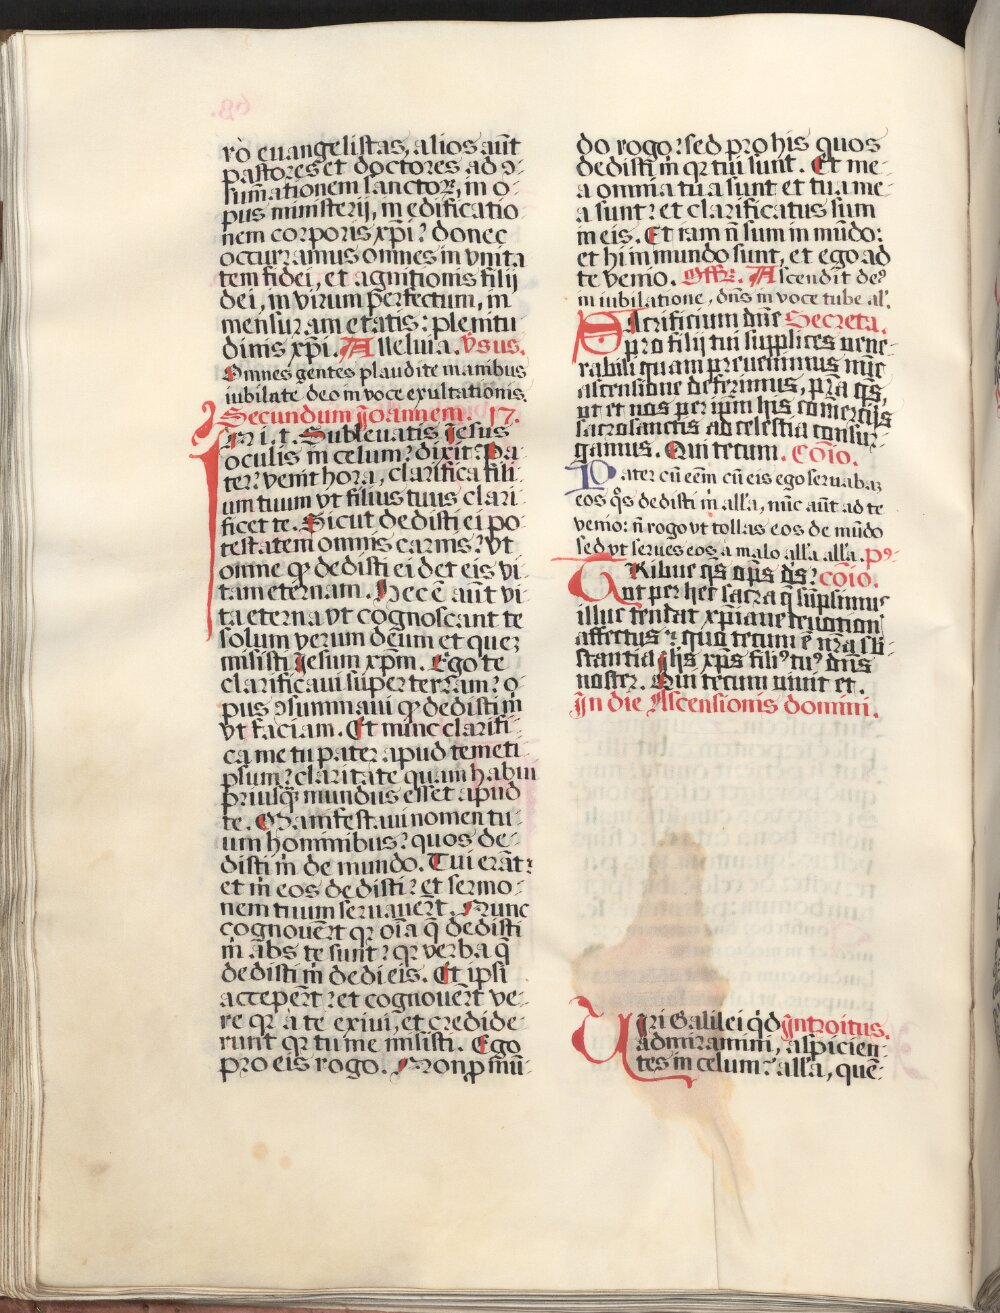 ro euangelistas, alios aūt
pastores et doctores ad ꝯ-
sum̄ationem sanctoꝝ, in o-
pus ministerij, in edificatio-
nem corporis xp̄i: donec
occurramus omnes in vnita
tem fidei, et agnitionis filij
dei, in virum perfectum, in
mensuram etatis: plenitu
dinis xp̄i. Alleluia. v̄sus.
Omnes gentes plaudite manibus
iubilate deo in voce exultationis.
Secundum Joannem. 17.
In i. t. Subleuatis Jesus
oculis in celum: dixit: Pa-
ter: venit hora, clarifica fili-
um tuum vt filius tuus clari-
ficet te. Sicut dedisti ei po-
testatem omnis carnis: vt
omne qꝫ dedisti ei det eis vi-
tam eternam. Hec ē aūt vi-
ta eterna vt cognoscant te
solum verum deum et queꝫ
misisti Jesum xp̄m. Ego te
clarificaui super terram: o-
pus ꝯsummaui qꝫ dedisti m̄
vt faciam. Et nunc clarifi-
ca me tu pater apud temeti
psum: claritate quam habui
priusqꝫ mundus esset apud
te. Manifestaui nomen tu-
um hominibus: quos de-
disti m̄ de mundo. Tui erāt:
et m̄ eos dedisti: et sermo-
nem tuum seruauer̄t. Nunc
cognouer̄t qꝛ oīa q̄ dedisti
m̄ abs te sunt: qꝛ verba q̄
dedisti m̄ dedi eis. Et ipsi
acceper̄t: et cognouer̄t ve-
re qꝛ a te exiui, et credide-
runt qꝛ tu me misisti. Ego
pro eis rogo. Non ꝓ mū-
do rogo: sed pro his quos
dedisti m̄ qꝛ tui sunt. Et me-
a omnia tua sunt et tua me-
a sunt: et clarificatus sum
in eis. Et iam n̄ sum in mūdo:
et hi in mundo sunt, et ego ad
te venio. Offꝛ. Ascendit deꝰ
in iubilatione, dn̄s in voce tube al'.
Sacrificium dn̄e Secreta.
pro filij tui supplices uene-
rabili quam preuenimus nūc
ascensione deferimus, pr̄a qs̄,
ut et nos per ip̄m his comercijs
sacrosanctis ad celestia consur-
gamus. Qui tecum. Cōio.
Pater cū eēm cū eis ego seruabaꝫ
eos q̄s dedisti m̄ all'a, nūc aūt ad te
venio: n̄ rogo vt tollas eos de mūdo
sed vt serues eos a malo all'a all'a. pꝰ-
Tribue qs̄ op̄s ds̄: cōio.
ut per hec sacra q̄ sūpsimus
illuc tendat xp̄iane deuotionis
affectus: quo tecum ē nr̄a sub-
stantia Jh̄s xp̄s filiꝰ tuꝰ dn̄s
noster. Qui tecum uiuit et.
In die Ascensionis domini.
Uiri Galilei qd̄ Introitus.
admiramini, aspicien-
tes in celum: all'a, quē-